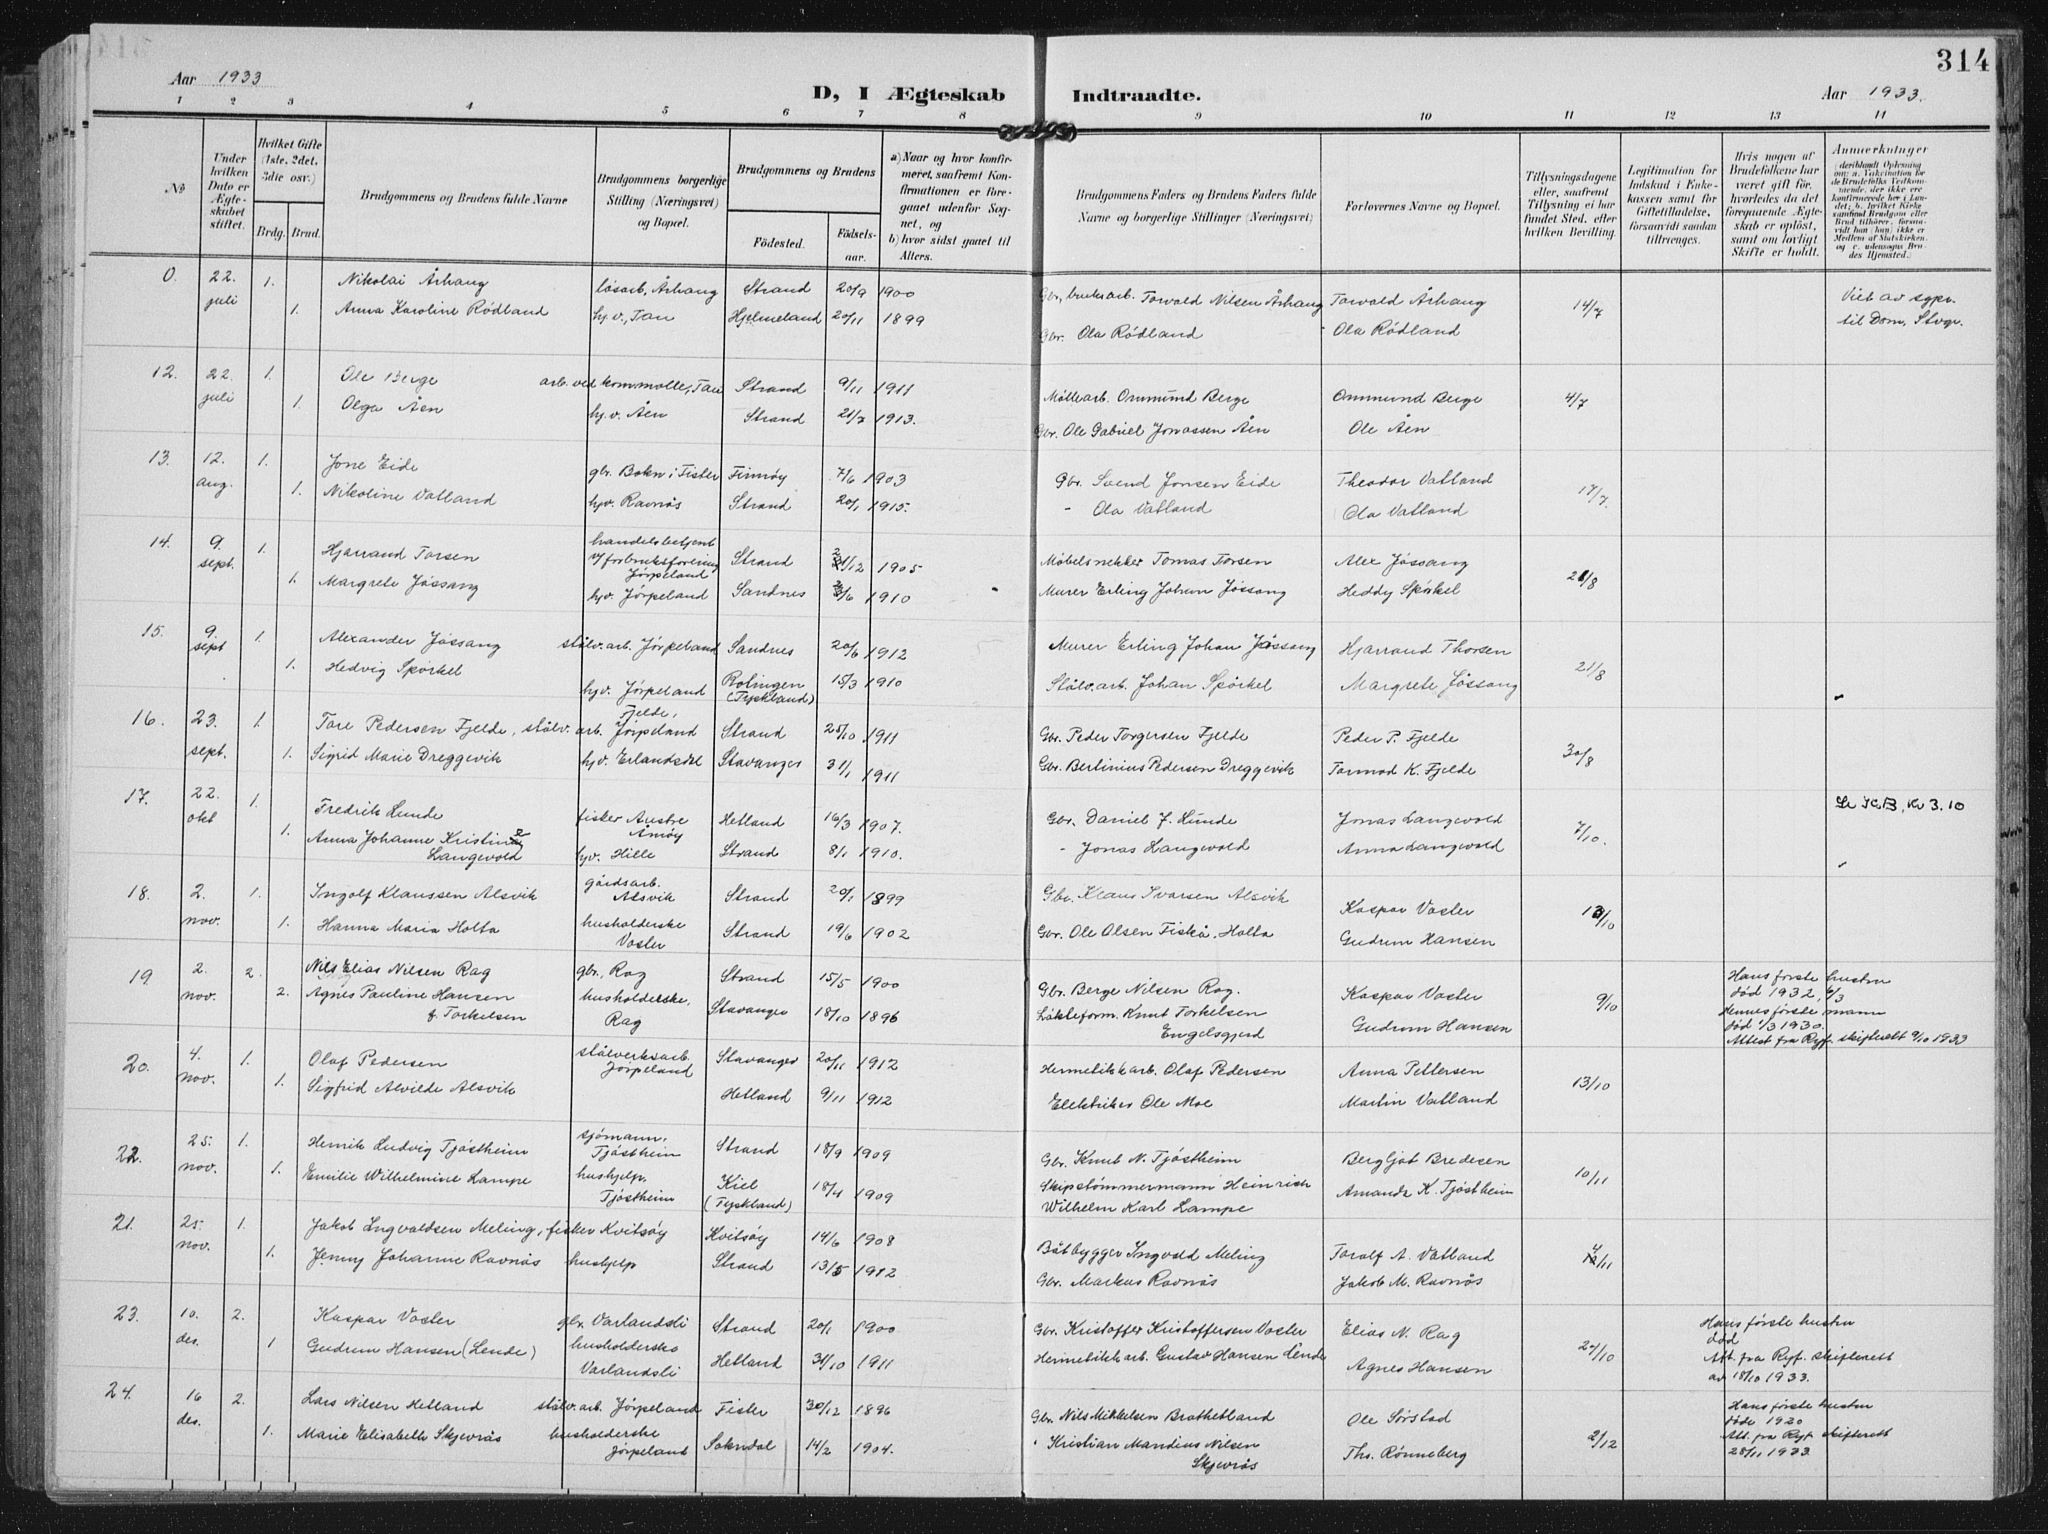 314
Aar 1933
D, I Ægteskab Indtraadte.
Aar 1933.
1 2 3 4 5 6 7 8 9 10 11 12 13 14
No
Under hvilken Dato er Ægteskabet stiftet.
Hvilket Gifte (1ste, 2det, 3die osv.)
Brdg. Brud.
Brudgommens og Brudens fulde Navne
Brudgommens borgerlige Stilling (Næringsvei) og Bopæl.
Brudgommens og Brudens
Fødested.
Fødselsaar.
a) Naar og hvor konfirmeret, saafremt Konfirmationen er foregaaet udenfor Sognet, og
b) hvor sidst gaaet til Alters.
Brudgommens Faders og Brudens Faders fulde Navne og borgerlige Stillinger (Næringsvei)
Forlovernes Navne og Bopæl.
Tillysningsdagene eller, saafremt Tillysning ei har fundet Sted, efter hvilken Bevilling.
Legitimation for Indskud i Enkekassen samt for Giftetilladelse, forsaavidt saadan tiltrænges.
Hvis nogen af Brudefolkene har været gift før, hvorledes da det foregaaende Ægteskab er opløst, samt om lovligt Skifte er holdt.
Anmærkninger
0. 22. juli 1. Nikolai Århaug løsarb., Århaug Strand 20/9 1900 Gbr., bruksarb. Torvald Nilsen Århaug Torvald Århaug 14/7 Viet av sypr.
1. Anna Karoline Rödland hj.v., Tau Hjelmeland 20/11 1899 Gbr. Ola Rödland Ola Rödland til Dom, Stvgr.
12. 22. juli 1. Ole Berge arb. ved kornmölle, Tau Strand 9/11 1911 Möllearb. Ommund Berge Ommund Berge 4/7
1. Olga Åen hj.v. Åen Strand 21/7 1913. Gbr. Ole Gabriel Jonassen Åen Ole Åen
13. 12. aug. 1. Jone Eide gbr. Bokn i Fister Finnöy 7/6 1903 Gbr. Svend Jonsen Eide Theodor Vatland 17/7.
1. Nikoline Vatland hjv. Ravnös Strand 20/1 1915. - Ola Vatland Ola Vatland
14. 9. sept. 1. Hjarrand Torsen handelsbetjent v/ forbruksforening Jörpeland Strand 21/12 1905 Möbelsnekker Tomas Torsen Alex Jössang 21/8
1. Margrete Jössang hjv. Jörpeland Sandnes 3/6 1910 Murer Erling Johan Jössang Heddy Spörkel
15. 9. sept 1. Alexander Jössang stålv.arb. Jörpeland Sandnes 20/6 1912 Murer Erling Johan Jössang Hjarrand Thorsen 21/8
1. Hedvig Spörkel hjv. Jörpeland (Tyskland) 15/3 1910 Stålv.arb. Johan Spörkel Margrete Jössang
16. 23. sept. 1. Tore Pedersen Fjelde, stålv.arb. Fjelde, Jörpeland Strand 25/10 1911 Gbr. Peder Torgersen Fjelde Peder P. Fjelde 30/8
1. Sigrid Marie Dreggevik hjv. Erlandsdal Stavanger 31/1 1911 Gbr. Bertinius Pedersen Dreggevik Tormod K. Fjelde
17. 22. okt 1. Fredrik Lunde fisker Austre Åmöy Hetland 16/3 1907. Gbr. Daniel J. Lunde Jonas Langvold 7/10. Se K.B., Kv 3.10
1. Anna Johanne Kristine Langevold hjv. Hille Strand 8/1 1910. - Jonas Langvold Anna Langvold
18. 2. nov. 1. Ingolf Klaussen Alsvik gårdsarb. Alsvik Strand 20/1 1899 Gbr. Klaus Ivarsen Alsvik Kaspar Voster 13/10
1. Hanna Maria Holta husholderske Voster Strand 19/6 1902 Gbr. Ole Olsen Fiskå, Holta Gudrun Hansen
19. 2. nov. 2. Nils Elias Nilsen Rag gbr., Rag Strand 15/5 1900 Gbr. Berge Nilsen Rag. Kaspar Voster 9/10 Hans første hustru død 1932, 6/3
2. Agnes Pauline Hansen f. Torkelsen husholderske, Rag Stavanger 18/10 1896 Knut Torkelsen Engelsgjerd Gudrun Hansen Hennes første mann død 1/3 1930. Attest fra Ryf. skifterett 9/10 1933
20. 4. nov. 1. Olaf Pedersen stålverksarb. Jörpeland Stavanger 20/11 1912 Hermetikkarb. Olaf Pedersen Anna Pettersen 13/10
1. Sigfrid Alvilde Alsvik Hetland 9/11 1912 Elektriker Ole Moe Martin Vatland
22. 25. nov. 1. Henrik Ludvig Tjöstheim sjömann, Tjöstheim Strand 18/9 1909 Gbr. Knut N. Tjöstheim Bergljot Bredesen 10/11
1. Emilie Wilhelmine Lampe hushjelp, Tjöstheim Kiel (Tyskland) 18/4 1909 Skipstömmermann Heinrich Wilhelm Karl Lampe Amanda K. Tjöstheim
21. 25. nov. 1. Jakob Ingvaldsen Meling, fisker Kvitsöy Kvitsöy 14/6 1908 Båtbygger Ingvald Meling Toralf A. Vatland /11
1. Jenny Johanne Ravnös hushjelp Strand 13/5 1912 Gbr. Markus Ravnös Jakob M. Ravnös
23. 10. des. 2. Kaspar Voster gbr. Varlandsli Strand 20/1 1900 Gbr. Kristoffer Kristoffersen Voster Elias N. Rag 27/10 Hans første hustru død
1 Gudrun Hansen (Lende) husholderske Varlandsli Hetland 31/10 1911 Hermetikkarb. Gustav Hansen Lende Agnes Hansen Att. fra Ryf. skifterett av 18/10 1933.
24. 16 des. 2. Lars Nilsen Hetland stålv.arb. Jörpeland Fister 30/12 1896 Gbr. Nils Mikkelsen Brathetland Ole Sörstad 2/12 Hans første hustru døde 1920
1. Marie Elisabeth Skjevrås husholderske Jörpeland Sokndal 14/2 1904. " Kristian Mandius Nilsen Skjevrås Ths. Rönneberg Att. fra Ryf. skifterett 28/11 1933